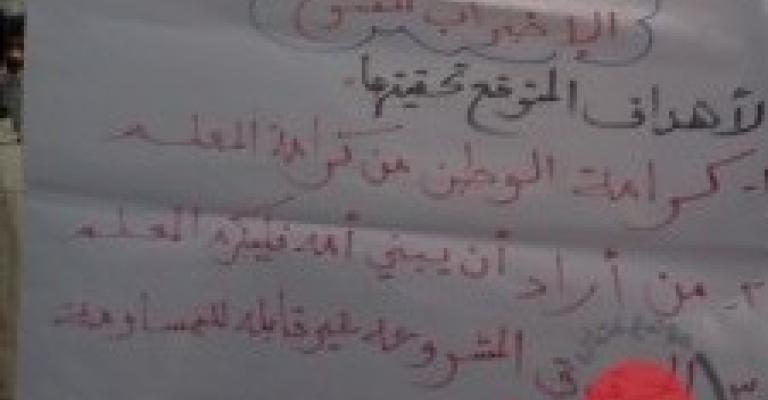 الإضراب
الأهداف المتوقع تحقيقها.
١- كرامة الوطن من كرامة المعلم
٢- من أراد أن يبني أمه فليكرم المعلم
٣ المشروعه غير قابله للمساومة